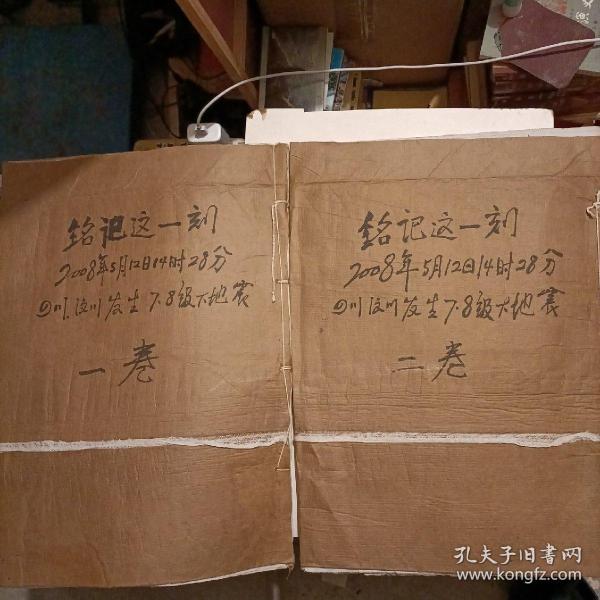 铭记这一刻
2008年5月12日14时28分
四川汶川发生7.8级大地震
一卷
铭记这一刻
2008年5月12日14时28分
四川汶川发生7.8级大地震
二卷
孔夫子旧書网
www.kongfz.com